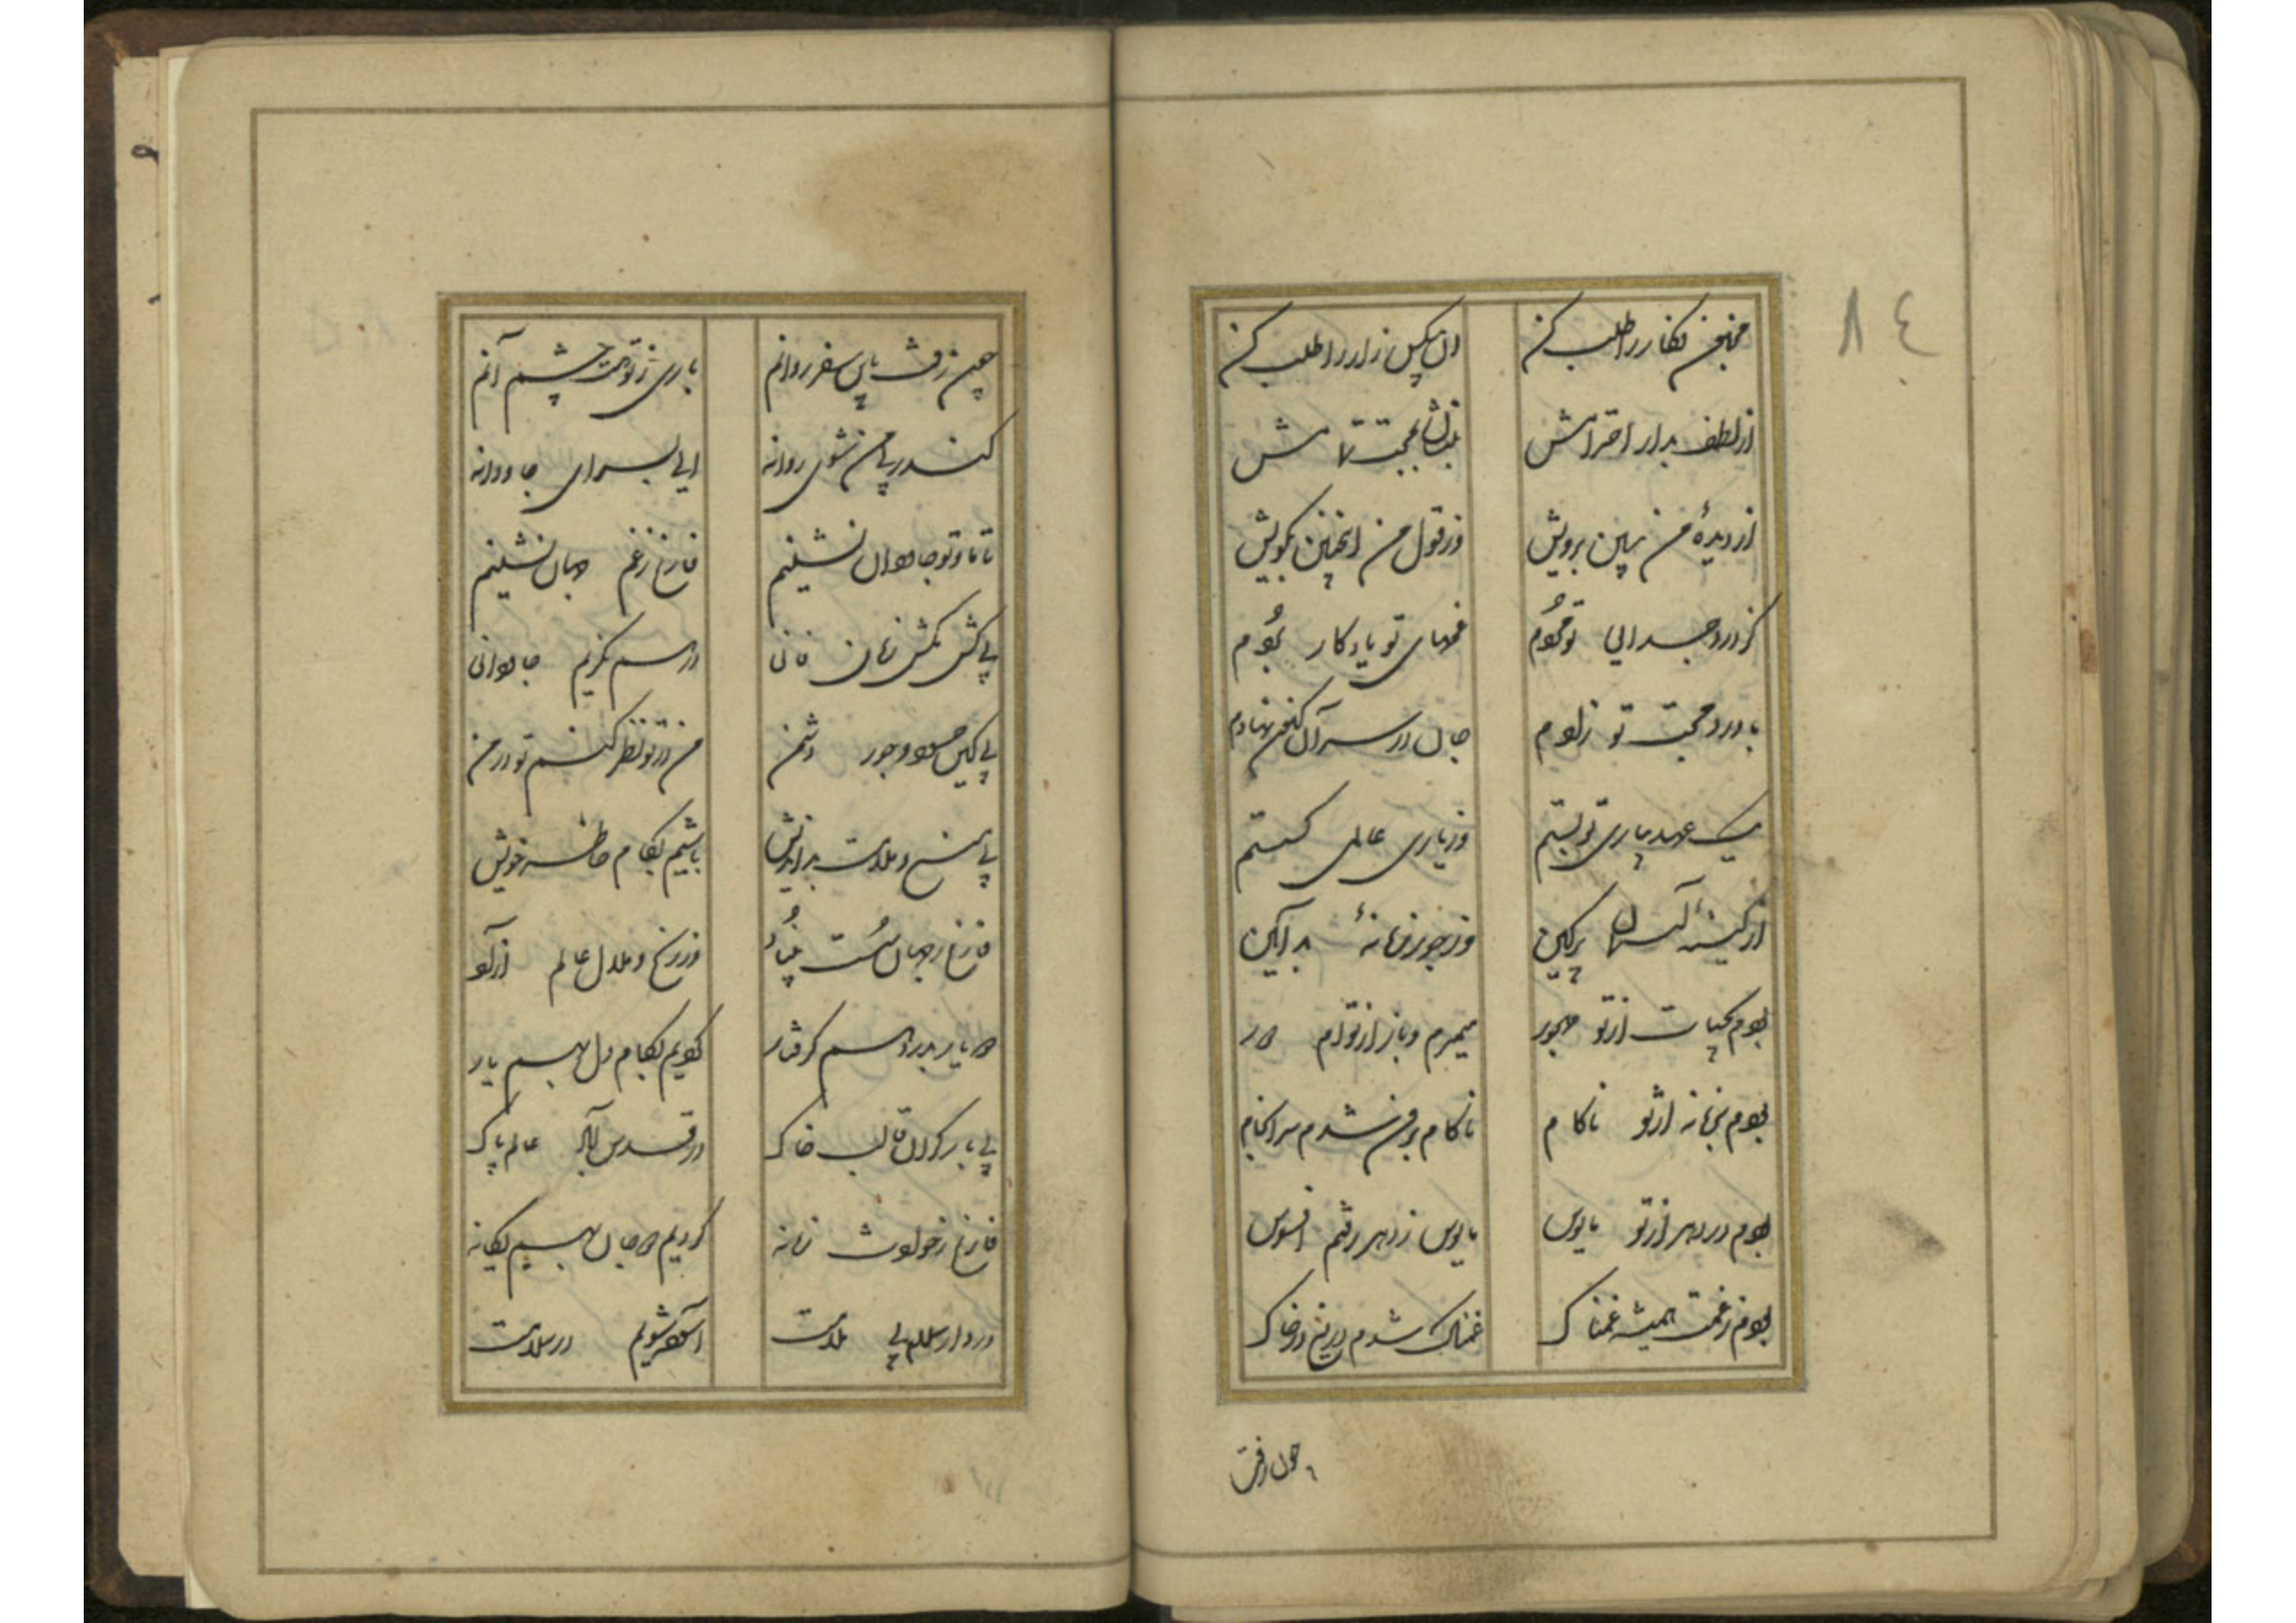 ٨٤
مجنون فکار را طلب کن
آن بیکس زار را طلب کن
از لطف بدار احترامش
بنشان بمحبت تمامش
از دیدهٔ من ببین برویش
وز قول من اینچنین بگویش
کز درد جدایی تو مردم
غمهای تو یادگار بردم
با درد محبت تو زادم
جان در سر آن سخن نهادم
یک عهد بیاری تو بستم
وز یاری عالمی گسستم
از کینهٔ آسمان پرکین
وز جور زمانهٔ بدآیین
بودم بحیات از تو مهجور
میمیرم و باز از توام دور
بودم بزمانه از تو ناکام
ناکام برون شدم سرانجام
بودم در دهر از تو مأیوس
مأیوس ز دهر رفتم افسوس
بودم ز غمت همیشه غمناک
غمناک شدم دریغ در خاک
چون رفت
چون رفت بپای سفر روانم
باری ز تو هست چشم آنم
کاندر پی من شوی روانه
آیی بسرای جاودانه
تا ما و تو جاودان نشینیم
فارغ ز غم جهان نشینیم
بی کشمکش زمان فانی
در هم نگریم جاودانی
بی کین حسود و جور دشمن
من در تو نظر کنم تو در من
بی منع و ملامت بداندیش
باشیم بکام خاطر خویش
فارغ ز جهان سست بنیاد
وز رنج و ملال عالم آزاد
دو یار بدرد هم گرفتار
گویم بکام دل بهم یار
بی بار گران قالب خاک
در قدس آباد عالم پاک
فارغ ز حوادث زمانه
گردیم دو جان بهم یگانه
در دار السلام بی ملامت
آسوده شویم در سلامت